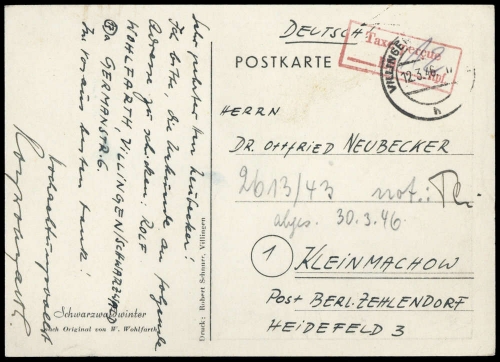 DEUTSCH
POSTKARTE
Taxe perçue
Rpf.
VILLINGEN
12.3.46
h
HERRN
DR. OTTFRIED NEUBECKER
2613/43 not.:
abges. 30.3.46.
1
KLEINMACHOW
POST BERL. ZEHLENDORF
HEIDEFELD 3
Sehr geehrter Herr Neubecker!
Ich bitte die Urkunde an folgende
Adresse zu schicken: ROLF
WOHLFARTH, VILLINGEN/SCHWARZWALD
GERMANSTR. 6.
Im voraus besten Dank!
Hochachtungsvollst
Schwarzwaldwinter
nach Original von W. Wohlfarth
Druck: Robert Schnurr, Villingen